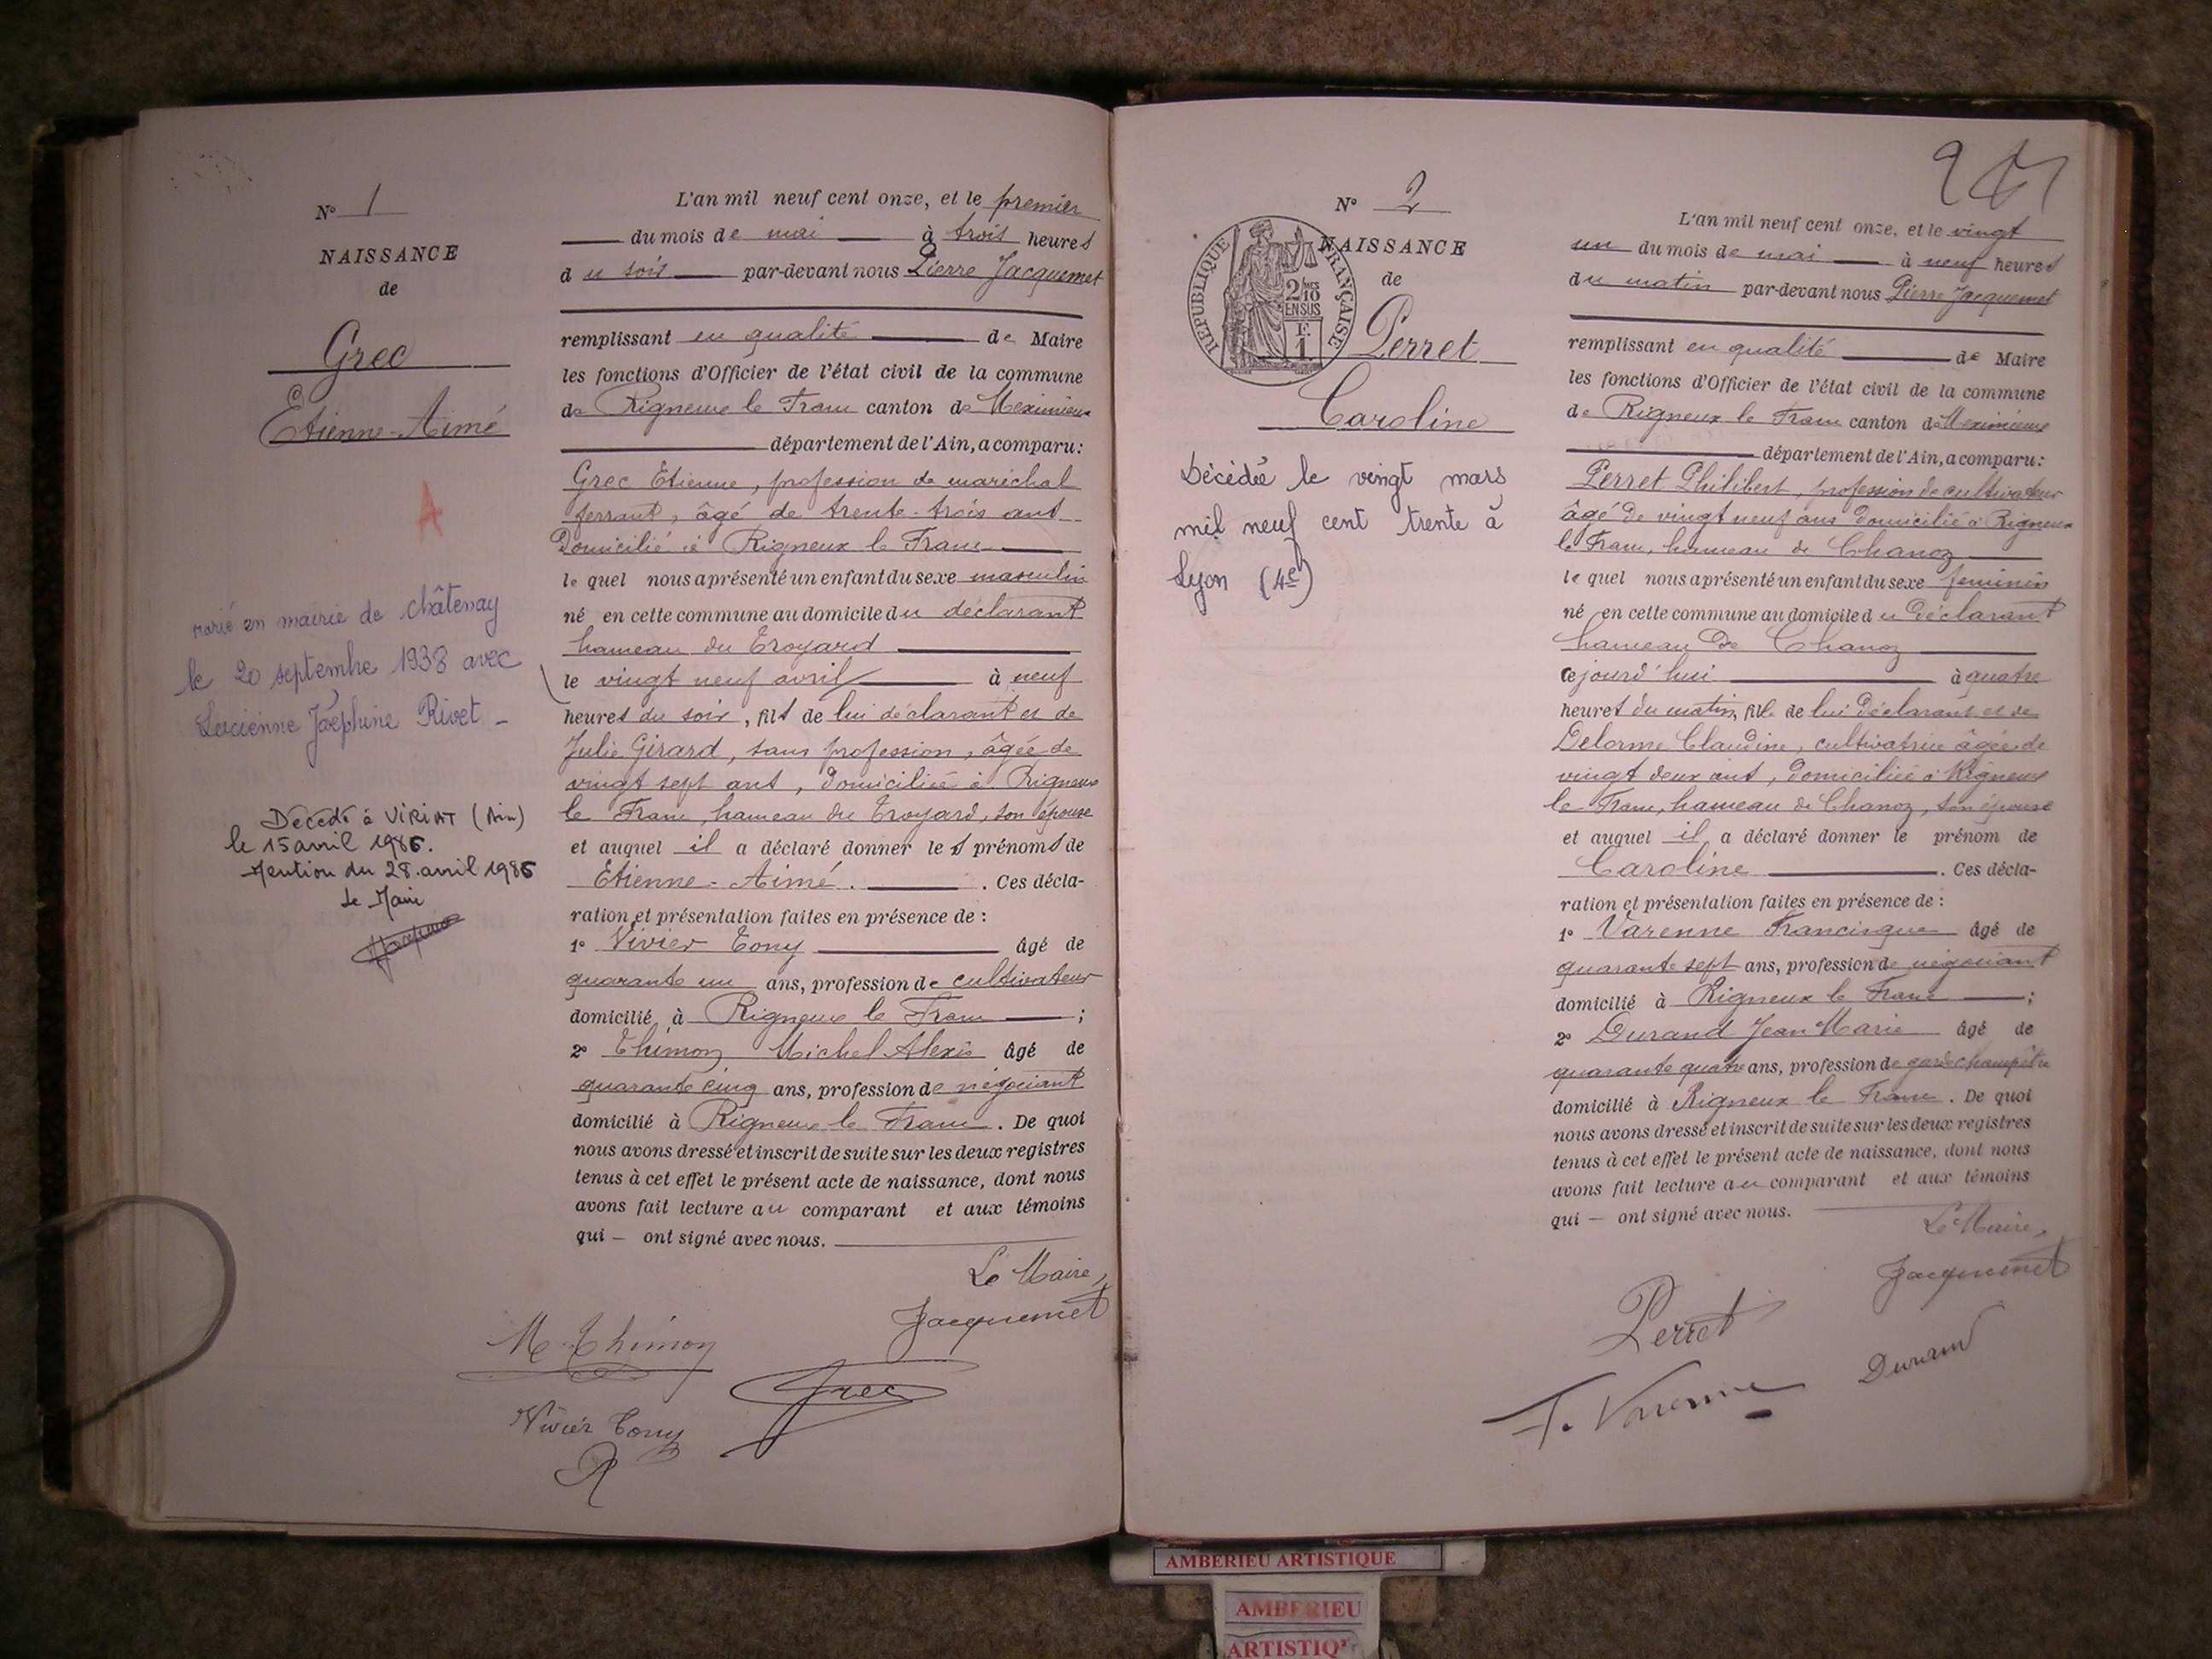 N° 1
NAISSANCE
de
Grec
Etienne-Aimé
A
Marié en mairie de Châtenay
le 20 septembre 1938 avec
Lucienne Joséphine Rivet -
Décédé à VIRIAT (Ain)
le 15 avril 1986.
Mention du 28 avril 1986
Le Maire
L'an mil neuf cent onze, et le premier
du mois de mai à trois heures
du soir par-devant nous Pierre Jacquemet
remplissant en qualité de Maire
les fonctions d'Officier de l'état civil de la commune
de Rigneux le Franc canton de Meximieux
département de l'Ain, a comparu:
Grec Etienne, profession de maréchal
ferrant, âgé de trente-trois ans
domicilié à Rigneux le Franc
le quel nous a présenté un enfant du sexe masculin
né en cette commune au domicile du déclarant
hameau du Troyard
le vingt neuf avril à neuf
heures du soir, fils de lui déclarant et de
Julie Girard, sans profession, âgée de
vingt sept ans, domiciliée à Rigneux
le Franc, hameau du Troyard, son épouse
et auquel il a déclaré donner les prénoms de
Etienne-Aimé. . Ces décla-
ration et présentation faites en présence de :
1° Vivier Tony âgé de
quarante un ans, profession de cultivateur
domicilié à Rigneux le Franc ;
2° Thimon Michel Alexis âgé de
quarante cinq ans, profession de négociant
domicilié à Rigneux le Franc. De quoi
nous avons dressé et inscrit de suite sur les deux registres
tenus à cet effet le présent acte de naissance, dont nous
avons fait lecture au comparant et aux témoins
qui — ont signé avec nous.
Le Maire,
Jacquemet
M. Thimon
Grec
Vivier Tony
N° 2
NAISSANCE
de
REPUBLIQUE FRANÇAISE
2/10
EN SUS
F.
1.
Perret
Caroline
Décédée le vingt mars
mil neuf cent trente à
Lyon (4e)
L'an mil neuf cent onze, et le vingt
un du mois de mai à neuf heures
du matin par-devant nous Pierre Jacquemet
remplissant en qualité de Maire
les fonctions d'Officier de l'état civil de la commune
de Rigneux le Franc canton de Meximieux
département de l'Ain, a comparu:
Perret Philibert, profession de cultivateur
âgé de vingt neuf ans domicilié à Rigneux
le Franc, hameau de Chanoz
le quel nous a présenté un enfant du sexe feminin
né en cette commune au domicile du déclarant
hameau de Chanoz
cejourd'hui à quatre
heures du matin, fille de lui déclarant et de
Delorme Claudine, cultivatrice âgée de
vingt deux ans, domiciliée à Rigneux
le Franc, hameau de Chanoz, son épouse
et auquel il a déclaré donner le prénom de
Caroline . Ces décla-
ration et présentation faites en présence de :
1° Varenne Francisque âgé de
quarante sept ans, profession de négociant
domicilié à Rigneux le Franc ;
2° Durand Jean Marie âgé de
quarante quatre ans, profession de garde champêtre
domicilié à Rigneux le Franc. De quoi
nous avons dressé et inscrit de suite sur les deux registres
tenus à cet effet le présent acte de naissance, dont nous
avons fait lecture au comparant et aux témoins
qui — ont signé avec nous.
Le Maire,
Jacquemet
Perret
Durand
F. Varenne
AMBERIEU ARTISTIQUE
AMBERIEU
ARTISTIQ